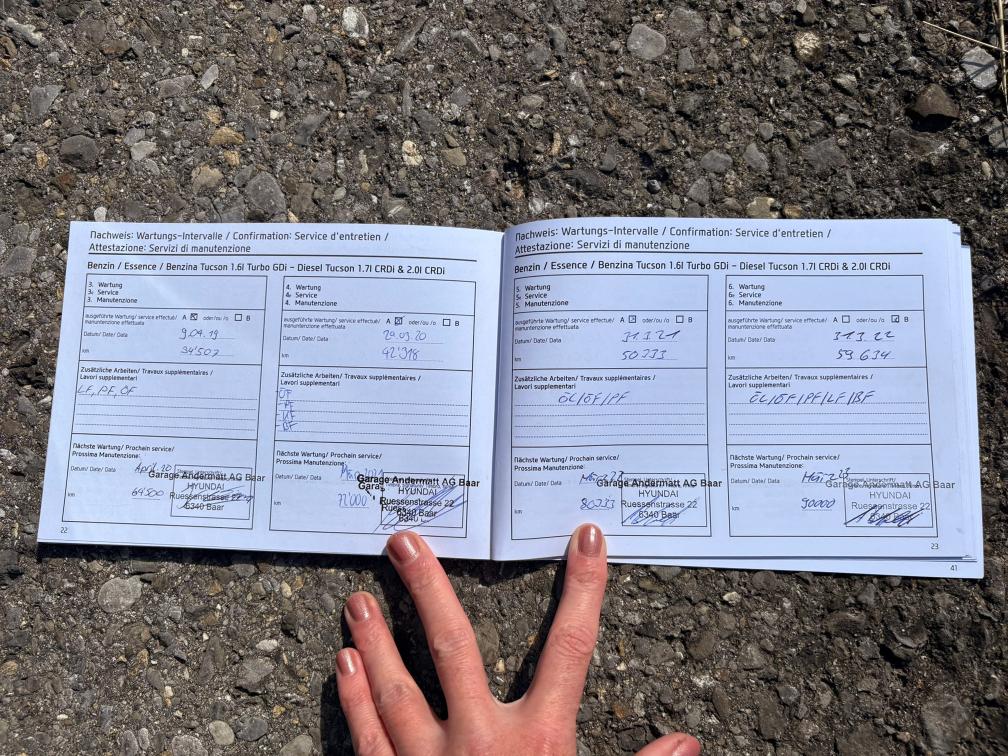 Nachweis: Wartungs-Intervalle / Confirmation: Service d'entretien /
Attestazione: Servizi di manutenzione
Benzin / Essence / Benzina Tucson 1.6l Turbo GDi – Diesel Tucson 1.7l CRDi & 2.0l CRDi
3. Wartung
3e Service
3. Manutenzione
ausgeführte Wartung/ service effectué/
manuntenzione effettuata
A ☒ oder/ou/o ☐ B
Datum/ Date/ Data 9.04.19
km 34'507
Zusätzliche Arbeiten/ Travaux supplémentaires /
Lavori supplementari
LF, PF, ÖF
Nächste Wartung/ Prochain service/
Prossima Manutenzione:
Datum/ Date/ Data April 20
km 64'500
Garage Andermatt AG Baar
HYUNDAI
Ruessenstrasse 22
6340 Baar
22
4. Wartung
4e Service
4. Manutenzione
ausgeführte Wartung/ service effectué/
manuntenzione effettuata
A ☒ oder/ou/o ☐ B
Datum/ Date/ Data
km 42'318
Zusätzliche Arbeiten/ Travaux supplémentaires /
Lavori supplementari
ÖF
PF
BF
Nächste Wartung/ Prochain service/
Prossima Manutenzione:
Datum/ Date/ Data
km 72'000
Garage Andermatt AG Baar
HYUNDAI
Ruessenstrasse 22
6340 Baar
Nachweis: Wartungs-Intervalle / Confirmation: Service d'entretien /
Attestazione: Servizi di manutenzione
Benzin / Essence / Benzina Tucson 1.6l Turbo GDi – Diesel Tucson 1.7l CRDi & 2.0l CRDi
5. Wartung
5e Service
5. Manutenzione
ausgeführte Wartung/ service effectué/
manuntenzione effettuata
A ☒ oder/ou/o ☐ B
Datum/ Date/ Data 31.3.21
km 50'233
Zusätzliche Arbeiten/ Travaux supplémentaires /
Lavori supplementari
ÖL/ÖF/PF
Nächste Wartung/ Prochain service/
Prossima Manutenzione:
Datum/ Date/ Data
km 80'233
Garage Andermatt AG Baar
HYUNDAI
Ruessenstrasse 22
6340 Baar
6. Wartung
6e Service
6. Manutenzione
ausgeführte Wartung/ service effectué/
manuntenzione effettuata
A ☐ oder/ou/o ☒ B
Datum/ Date/ Data 31.3.22
km 59'634
Zusätzliche Arbeiten/ Travaux supplémentaires /
Lavori supplementari
ÖL/ÖF/PF/LF/BF
Nächste Wartung/ Prochain service/
Prossima Manutenzione:
Datum/ Date/ Data März 23
km 90000
Garage Andermatt AG Baar
HYUNDAI
Ruessenstrasse 22
6340 Baar
23
41